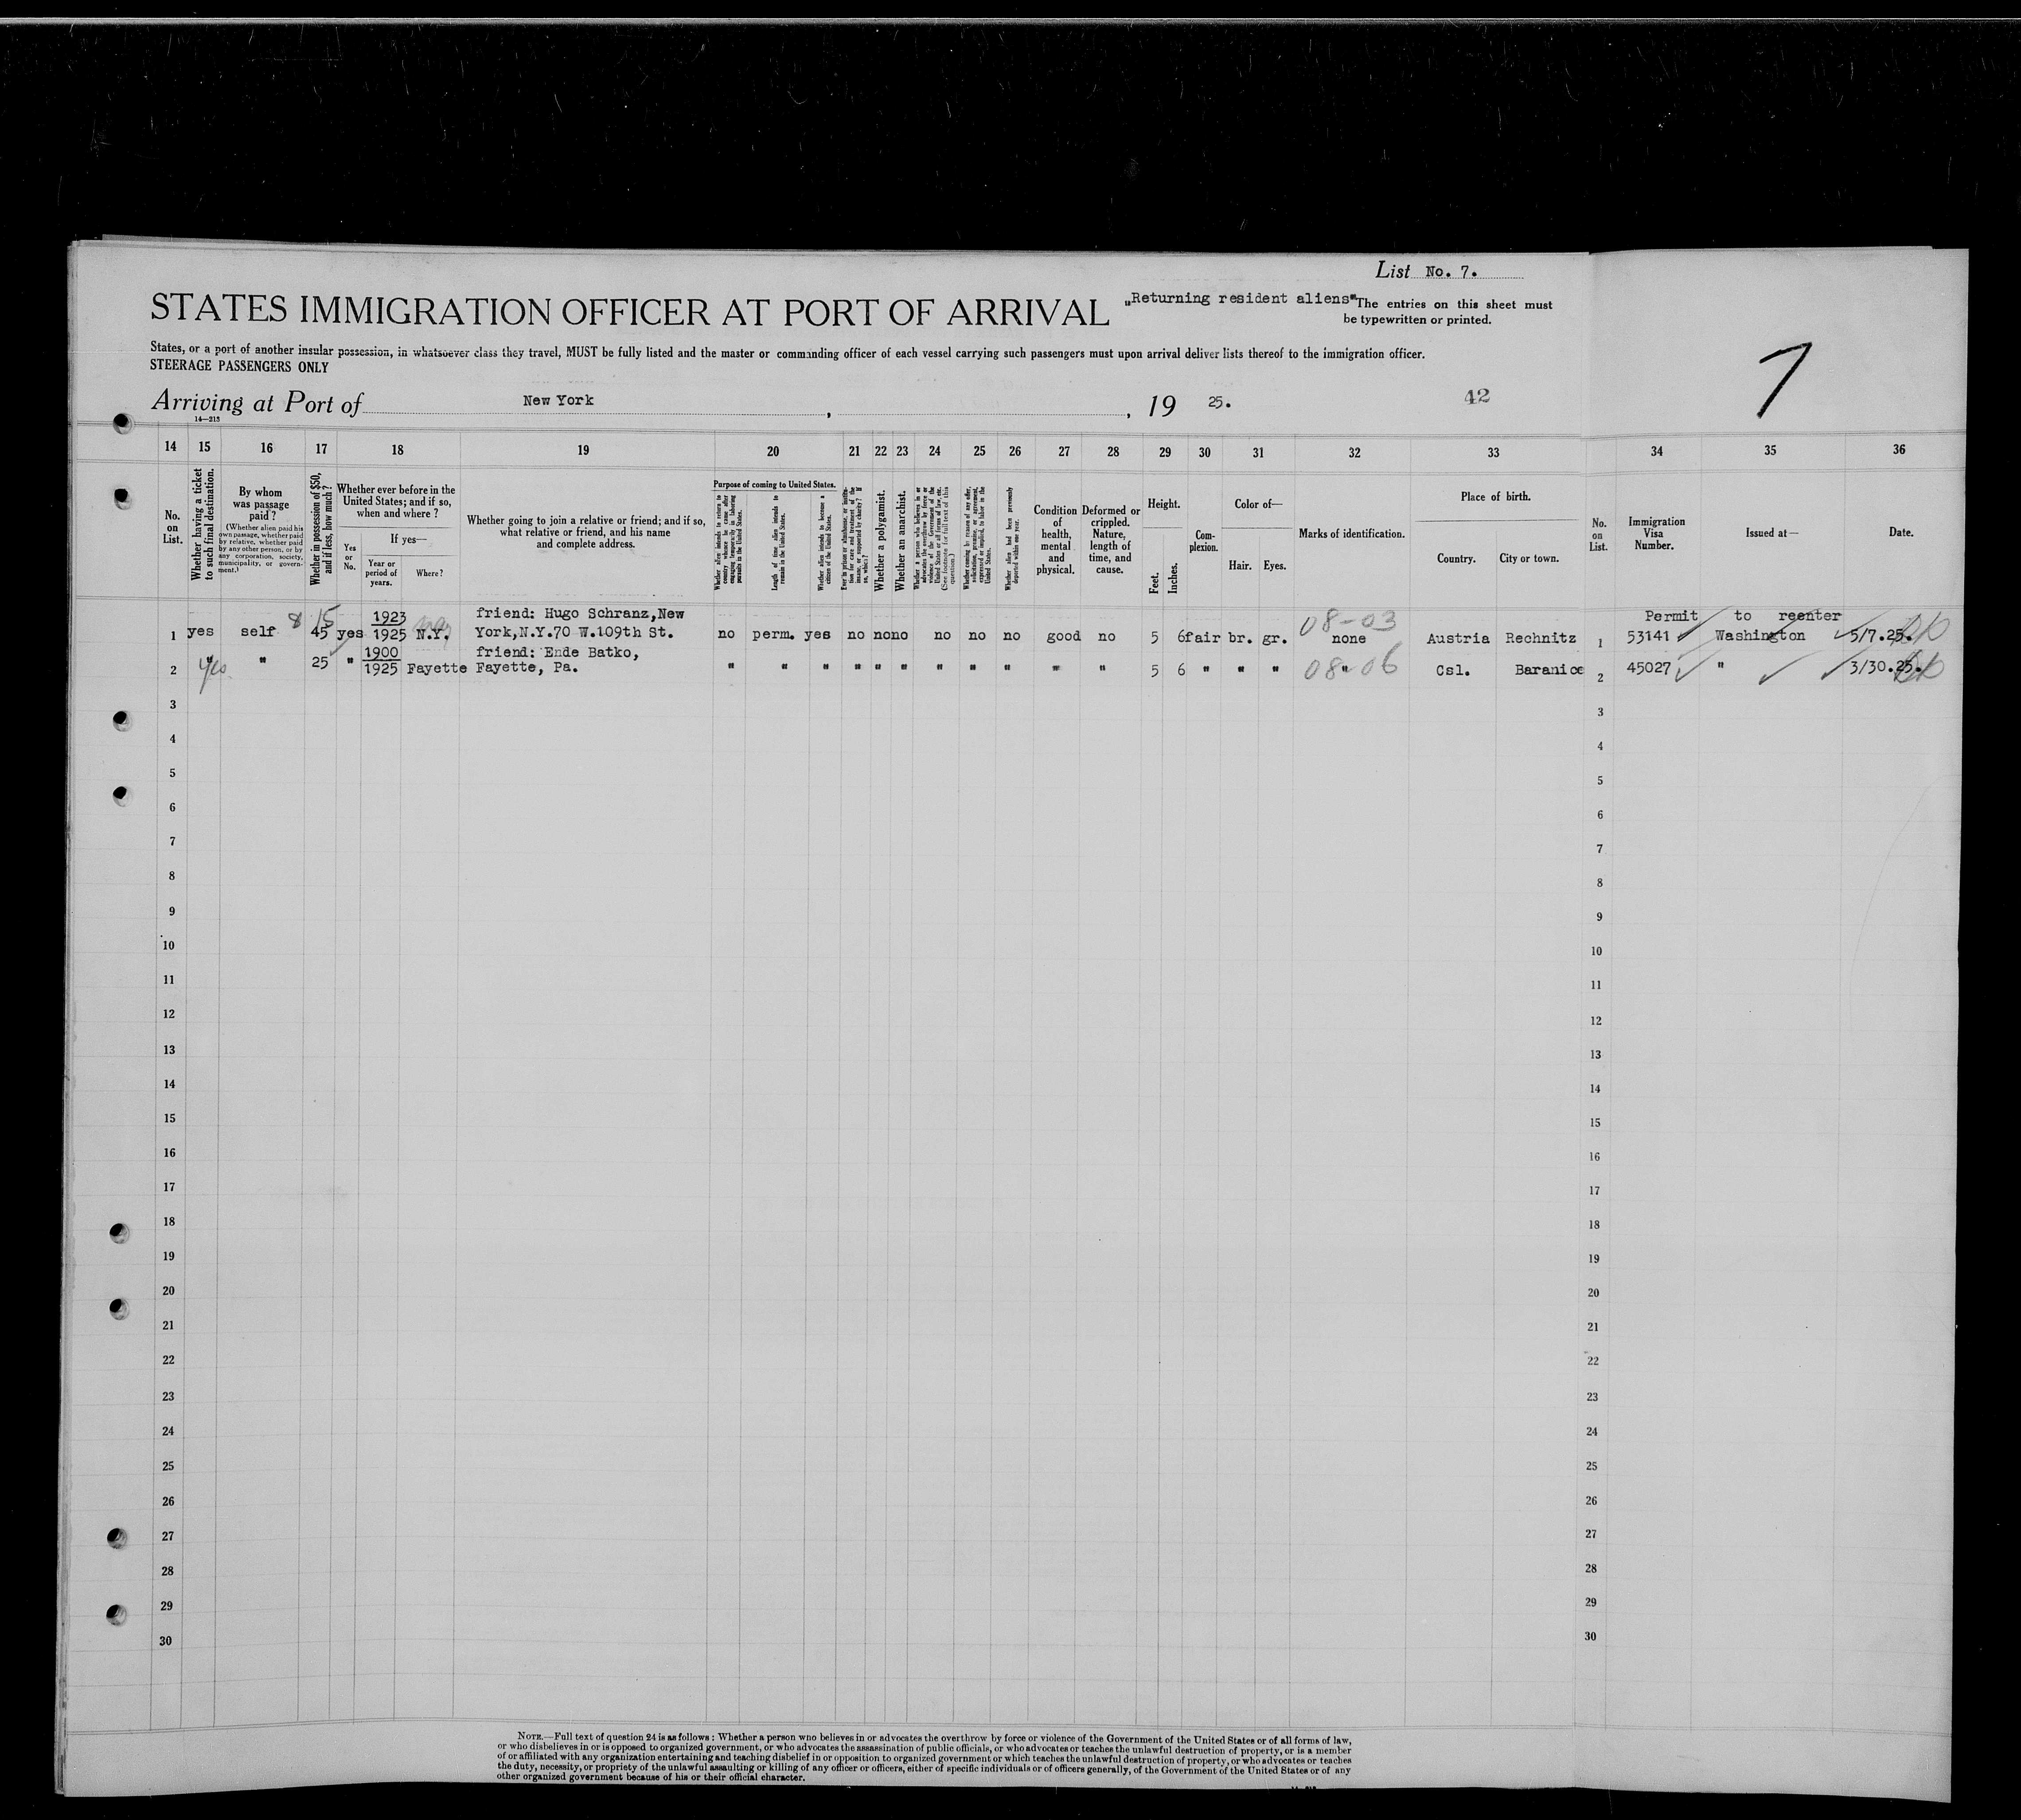 List No. 7.
STATES IMMIGRATION OFFICER AT PORT OF ARRIVAL
„Returning resident aliens" The entries on this sheet must
be typewritten or printed.
States, or a port of another insular possession, in whatsoever class they travel, MUST be fully listed and the master or commanding officer of each vessel carrying such passengers must upon arrival deliver lists thereof to the immigration officer.
STEERAGE PASSENGERS ONLY
Arriving at Port of New York, , 19 25.
42
7
14—213
14 15 16 17 18 19 20 21 22 23 24 25 26 27 28 29 30 31 32 33 34 35 36
No. on List.
Whether having a ticket to such final destination.
By whom was passage paid?
(Whether alien paid his own passage, whether paid by relative, whether paid by any other person, or by any corporation, society, municipality, or government.)
Whether in possession of $50, and if less, how much?
Whether ever before in the United States; and if so, when and where?
Yes or No.
If yes—
Year or period of years.
Where?
Whether going to join a relative or friend; and if so, what relative or friend, and his name and complete address.
Purpose of coming to United States.
Whether alien intends to return to country whence he came after engaging temporarily in laboring pursuits in the United States.
Length of time alien intends to remain in the United States.
Whether alien intends to become a citizen of the United States.
Ever in prison or almshouse, or institution for care and treatment of the insane, or supported by charity? If so, which?
Whether a polygamist.
Whether an anarchist.
Whether a person who believes in or advocates the overthrow by force or violence of the Government of the United States or all forms of law, etc. (See footnote for full text of this question.)
Whether coming by reason of any offer, solicitation, promise, or agreement, expressed or implied, to labor in the United States.
Whether alien had been previously deported within one year.
Condition of health, mental and physical.
Deformed or crippled. Nature, length of time, and cause.
Height.
Feet.
Inches.
Complexion.
Color of—
Hair.
Eyes.
Marks of identification.
Place of birth.
Country.
City or town.
No. on List.
Immigration Visa Number.
Issued at—
Date.
8 15 1923 friend: Hugo Schranz, New 08-03 Permit to reenter
1 yes self 45 yes 1925 N.Y. York, N.Y. 70 W. 109th St. no perm. yes no no no no no no good no 5 6 fair br. gr. none Austria Rechnitz 1 53141 Washington 5/7.25.
1900 friend: Ende Batko,
2 yes " 25 " 1925 Fayette Fayette, Pa. " " " " " " " " " " " 5 6 " " " 08-06 " Csl. Baranice 2 45027 " 3/30.25.
3 3
4 4
5 5
6 6
7 7
8 8
9 9
10 10
11 11
12 12
13 13
14 14
15 15
16 16
17 17
18 18
19 19
20 20
21 21
22 22
23 23
24 24
25 25
26 26
27 27
28 28
29 29
30 30
NOTE.—Full text of question 24 is as follows: Whether a person who believes in or advocates the overthrow by force or violence of the Government of the United States or of all forms of law,
or who disbelieves in or is opposed to organized government, or who advocates the assassination of public officials, or who advocates or teaches the unlawful destruction of property, or is a member
of or affiliated with any organization entertaining and teaching disbelief in or opposition to organized government or which teaches the unlawful destruction of property, or who advocates or teaches
the duty, necessity, or propriety of the unlawful assaulting or killing of any officer or officers, either of specific individuals or of officers generally, of the Government of the United States or of any
other organized government because of his or their official character.